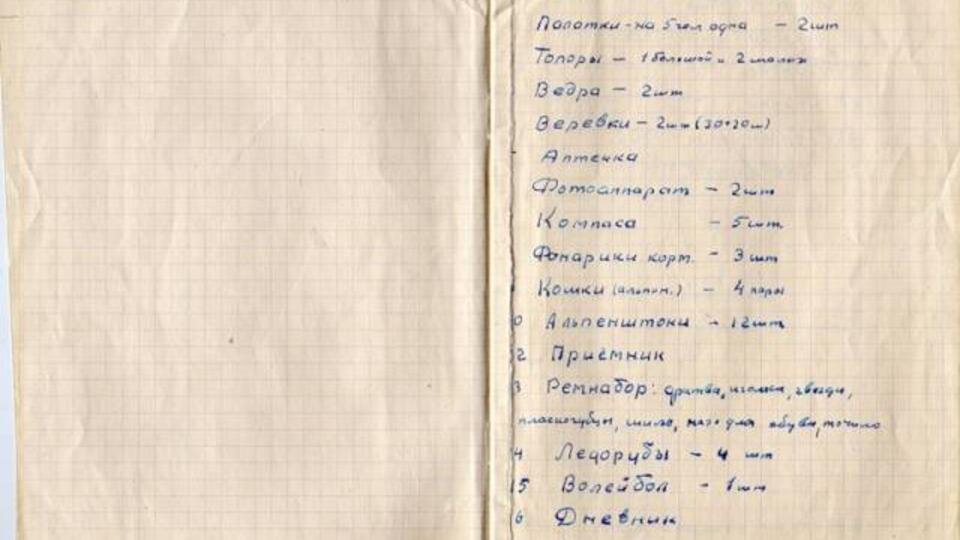 Палатки - на 5 чел одна - 2 шт
Топоры - 1 большой и 2 малых
Ведра - 2 шт
Веревки - 2 шт (30+20м)
Аптечка
Фотоаппарат - 2 шт
Компаса - 5 шт.
Фонарики карм. - 3 шт
Кошки (альпин.) - 4 пары
0 Альпенштоки - 12 шт
2 Приёмник
3 Ремнабор: дратва, иголки, гвозди,
плоскогубцы, шило, для обуви, точило
4 Ледорубы - 4 шт
15 Волейбол - 1 шт
6 Дневник